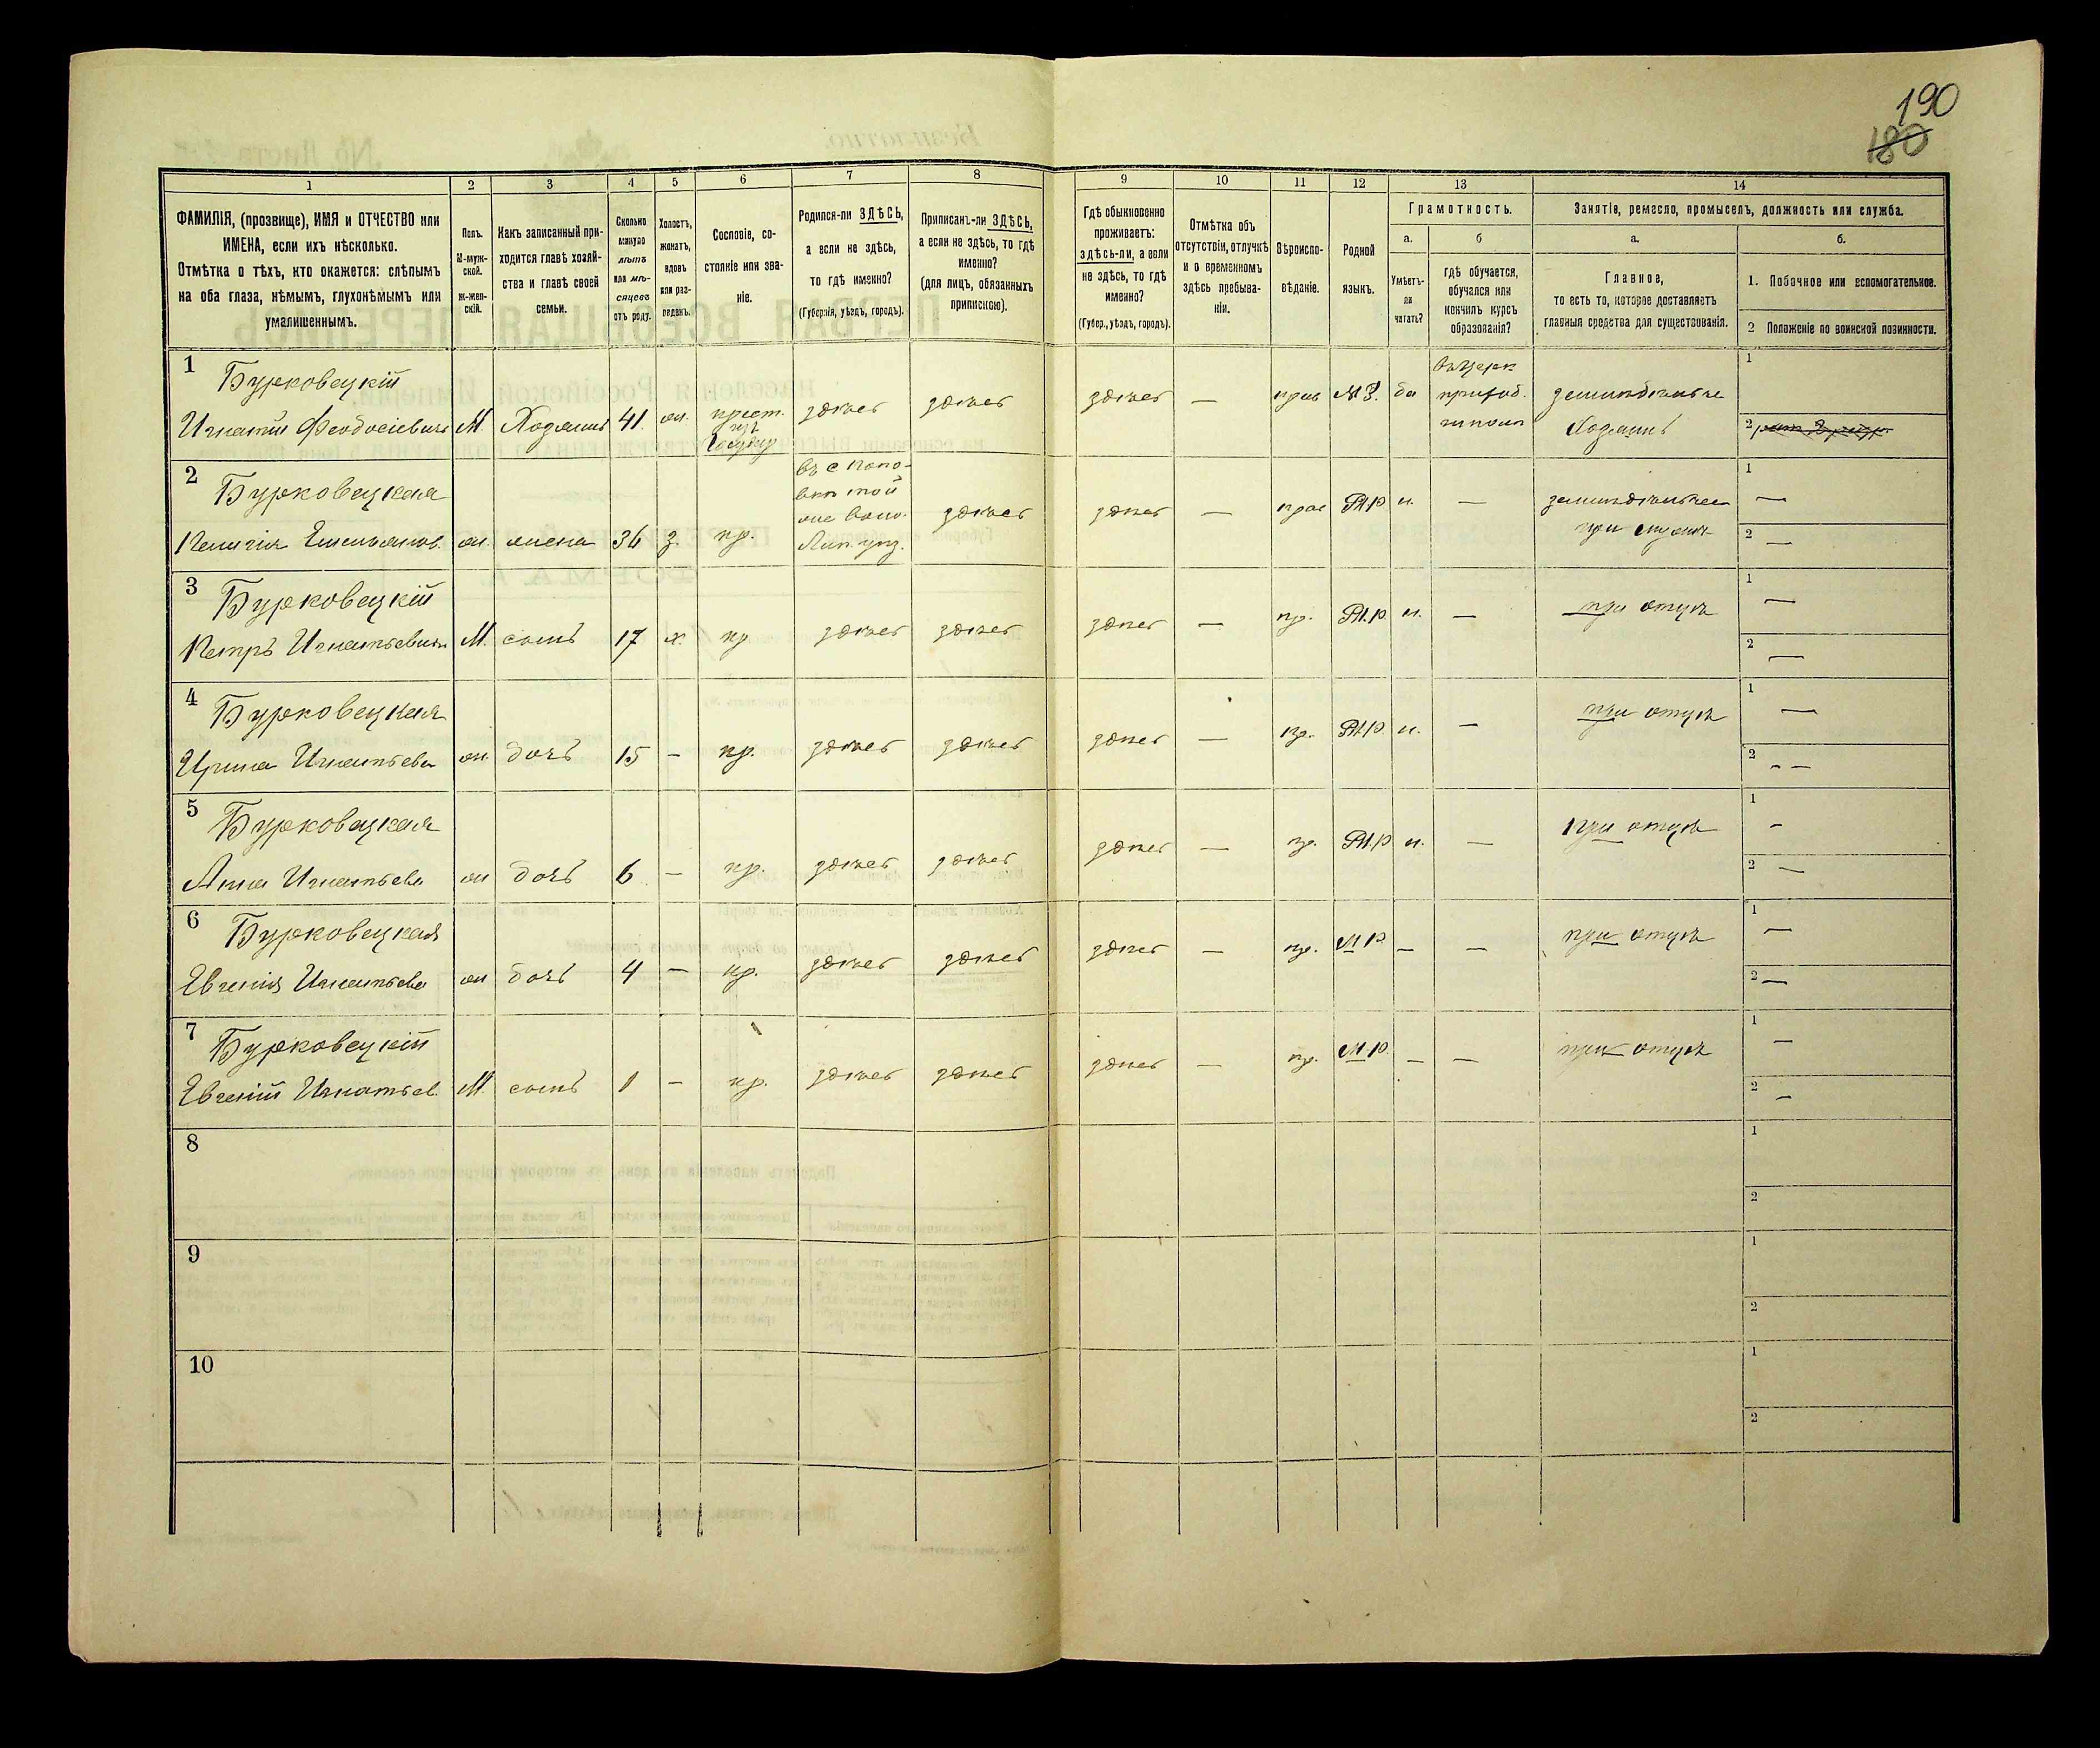 190
180
1
2
3
4
5
6
7
8
9
10
11
12
13
14
ФАМИЛІЯ, (прозвище), ИМЯ и ОТЧЕСТВО или
ИМЕНА, если ихъ нѣсколько.
Отмѣтка о тѣхъ, кто окажется: слѣпымъ
на оба глаза, нѣмымъ, глухонѣмымъ или
умалишеннымъ.
Полъ.
М-муж-
ской.
Ж-жен-
скій.
Какъ записанный при-
ходится главѣ хозяй-
ства и главѣ своей
семьи.
Сколько
минуло
лѣтъ
или мѣ-
сяцевъ
отъ роду.
Холостъ,
женатъ,
вдовъ
или раз-
веденъ.
Сословіе, со-
стояніе или зва-
ніе.
Родился-ли ЗДѢСЬ,
а если не здѣсь,
то гдѣ именно?
(Губернія, уѣздъ, городъ).
Приписанъ-ли ЗДѢСЬ,
а если не здѣсь, то гдѣ
именно?
(для лицъ, обязанныхъ
припискою).
Гдѣ обыкновенно
проживаетъ:
здѣсь-ли, а если
не здѣсь, то гдѣ
именно?
(Губер., уѣздъ, городъ).
Отмѣтка объ
отсутствіи, отлучкѣ
и о временномъ
здѣсь пребыва-
ніи.
Вѣроиспо-
вѣданіе.
Родной
языкъ.
Грамотность.
а.
Умѣетъ-
ли
читать?
б
гдѣ обучается,
обучался или
кончилъ курсъ
образованія?
Занятіе, ремесло, промыселъ, должность или служба.
а.
Главное,
то есть то, которое доставляетъ
главныя средства для существованія.
б.
1. Побочное или вспомогательное.
2 Положеніе по воинской повинности.
1 Бурковецкій
Игнатій Феодосіевичъ М. Хозяинъ 41. жн. крест. изъ здѣсь здѣсь здѣсь — прав да земледѣліе
Хозяинъ
2 Бурковецкая
ж. жена 36 з. кр. здѣсь здѣсь — прав н. —
3 Бурковецкій
Петръ Игнатьевичъ М. сынъ 17 х. кр здѣсь здѣсь здѣсь — пр. н. — при отцѣ
4 Бурковецкая
Ирина Игнатьева ж. дочь 15 — кр. здѣсь здѣсь здѣсь — пр. н. — при отцѣ
5 Бурковецкая
Анна Игнатьева ж дочь 6 — кр. здѣсь здѣсь здѣсь — пр. н. — при отцѣ
6 Бурковецкая
Евгенія Игнатьева ж дочь 4 — кр. здѣсь здѣсь здѣсь — пр. М.р. — — при отцѣ
7 Бурковецкій
Евгеній Игнатьев. М. сынъ 1 — кр. здѣсь здѣсь здѣсь — пр. М.р. — — при отцѣ
8
9
10